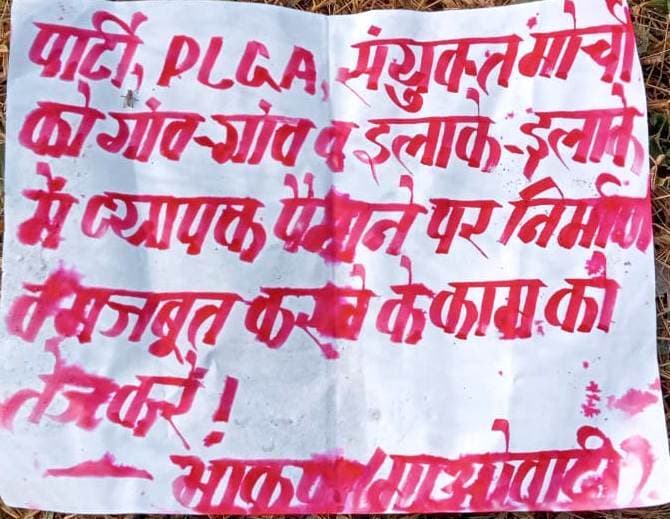 पार्टी, PLGA, संयुक्त मोर्चा
को गांव-गांव व इलाके-इलाके
में व्यापक पैमाने पर निर्माण
व मजबूत करने के काम को
तेज करें!
— भाकपा (माओवादी)